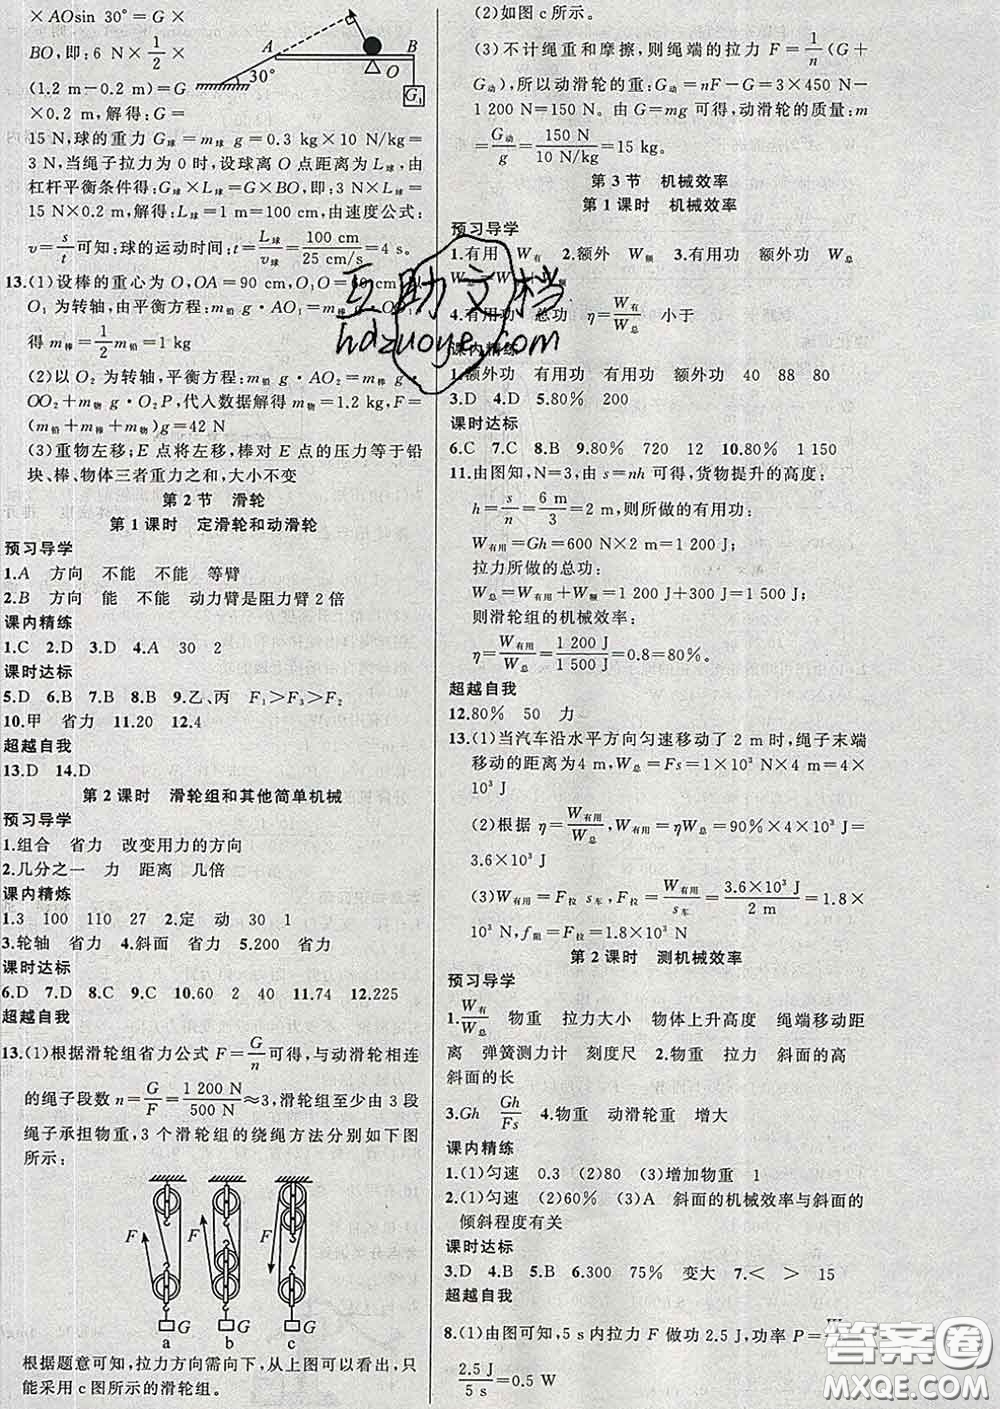 ×AOsin 30°=G×
BO,即:6 N×1/2×
(1.2 m-0.2 m)=G
×0.2 m,解得:G=
15 N,球的重力G球=m球 g=0.3 kg×10 N/kg=
3 N,当绳子拉力为0时,设球离O点距离为L球,由
杠杆平衡条件得:G球×L球=G×BO,即:3 N×L球=
15 N×0.2 m,解得:L球=1 m=100 cm,由速度公式:
v=s/t可知:球的运动时间:t=L球/v球=100 cm/25 cm/s=4 s。
A
B
O
30°
G₁
13.(1)设棒的重心为O,OA=90 cm,O₁O= cm以
O₁为转轴,由平衡方程:m铅 g·AO₁=m棒 g·
得m棒=1/2 m铅=1 kg
(2)以O₂为转轴,平衡方程:m铅 g·AO₂=m棒 g·
OO₂+m物 g·O₂P,代入数据解得m物=1.2 kg,F=
(m铅+m棒+m物)g=42 N
(3)重物左移;E点将左移,棒对E点的压力等于铅
块、棒、物体三者重力之和,大小不变
第2节 滑轮
第1课时 定滑轮和动滑轮
预习导学
1.A 方向 不能 不能 等臂
2.B 方向 能 不能 动力臂是阻力臂2倍
课内精练
1.C 2.D 3.D 4.A 30 2
课时达标
5.D 6.B 7.B 8.B 9.乙、丙 F₁>F₃>F₂
10.甲 省力 11.20 12.4
超越自我
13.D 14.D
第2课时 滑轮组和其他简单机械
预习导学
1.组合 省力 改变用力的方向
2.几分之一 力 距离 几倍
课内精炼
1.3 100 110 27 2.定 动 30 1
3.轮轴 省力 4.斜面 省力 5.200 省力
课时达标
6.D 7.D 8.C 9.C 10.60 2 40 11.74 12.225
超越自我
13.(1)根据滑轮组省力公式F=G/n可得,与动滑轮相连
的绳子段数n=G/F=1 200 N/500 N≈3,滑轮组至少由3段
绳子承担物重,3个滑轮组的绕绳方法分别如下图
所示:
F F F
G G G
a b c
根据题意可知,拉力方向需向下,从上图可以看出,只
能采用c图所示的滑轮组。
(2)如图c所示。
(3)不计绳重和摩擦,则绳端的拉力F=1/n(G+
G动),所以动滑轮的重:G动=nF-G=3×450 N-
1 200 N=150 N。由G=mg可得,动滑轮的质量:m
=G动/g=150 N/10 N/kg=15 kg。
第3节 机械效率
第1课时 机械效率
预习导学
1.有用 W有 2.额外 W额 3.有用功 额外功 总功 W总
4.有用功 总功 η=W有/W总 小于
课内精练
1.额外功 有用功 有用功 额外功 40 88 80
3.D 4.D 5.80% 200
课时达标
6.C 7.C 8.B 9.80% 720 12 10.80% 1 150
11.由图知,N=3,由s=nh可得,货物提升的高度:
h=s/n=6 m/3=2 m,则所做的有用功:
W有用=Gh=600 N×2 m=1 200 J;
拉力所做的总功:
W总=W有用+W额=1 200 J+300 J=1 500 J;
则滑轮组的机械效率:
η=W有用/W总=1 200 J/1 500 J=0.8=80%。
超越自我
12.80% 50 力
13.(1)当汽车沿水平方向匀速移动了2 m时,绳子末端
移动的距离为4 m,W总=Fs=1×10³ N×4 m=4×
10³ J
(2)根据η=W有用/W总,W有用=ηW总=90%×4×10³ J=
3.6×10³ J
(3)W有用=F拉 s车,F拉=W有用/s车=3.6×10³ J/2 m=1.8×
10³ N,f阻=F拉=1.8×10³ N
第2课时 测机械效率
预习导学
1.W有/W总 物重 拉力大小 物体上升高度 绳端移动距
离 弹簧测力计 刻度尺 2.物重 拉力 斜面的高
斜面的长
3.Gh Gh/Fs 4.物重 动滑轮重 增大
课内精练
1.(1)匀速 0.3 (2)80 (3)增加物重 1
2.(1)匀速 (2)60% (3)A 斜面的机械效率与斜面的
倾斜程度有关
课时达标
3.D 4.B 5.B 6.300 75% 变大 7.< > 15
超越自我
8.(1)由图可知,5 s内拉力F做功2.5 J,功率P=
2.5 J/5 s=0.5 W
互助文档
hdzuoye.com
答案圈
MXQE.COM